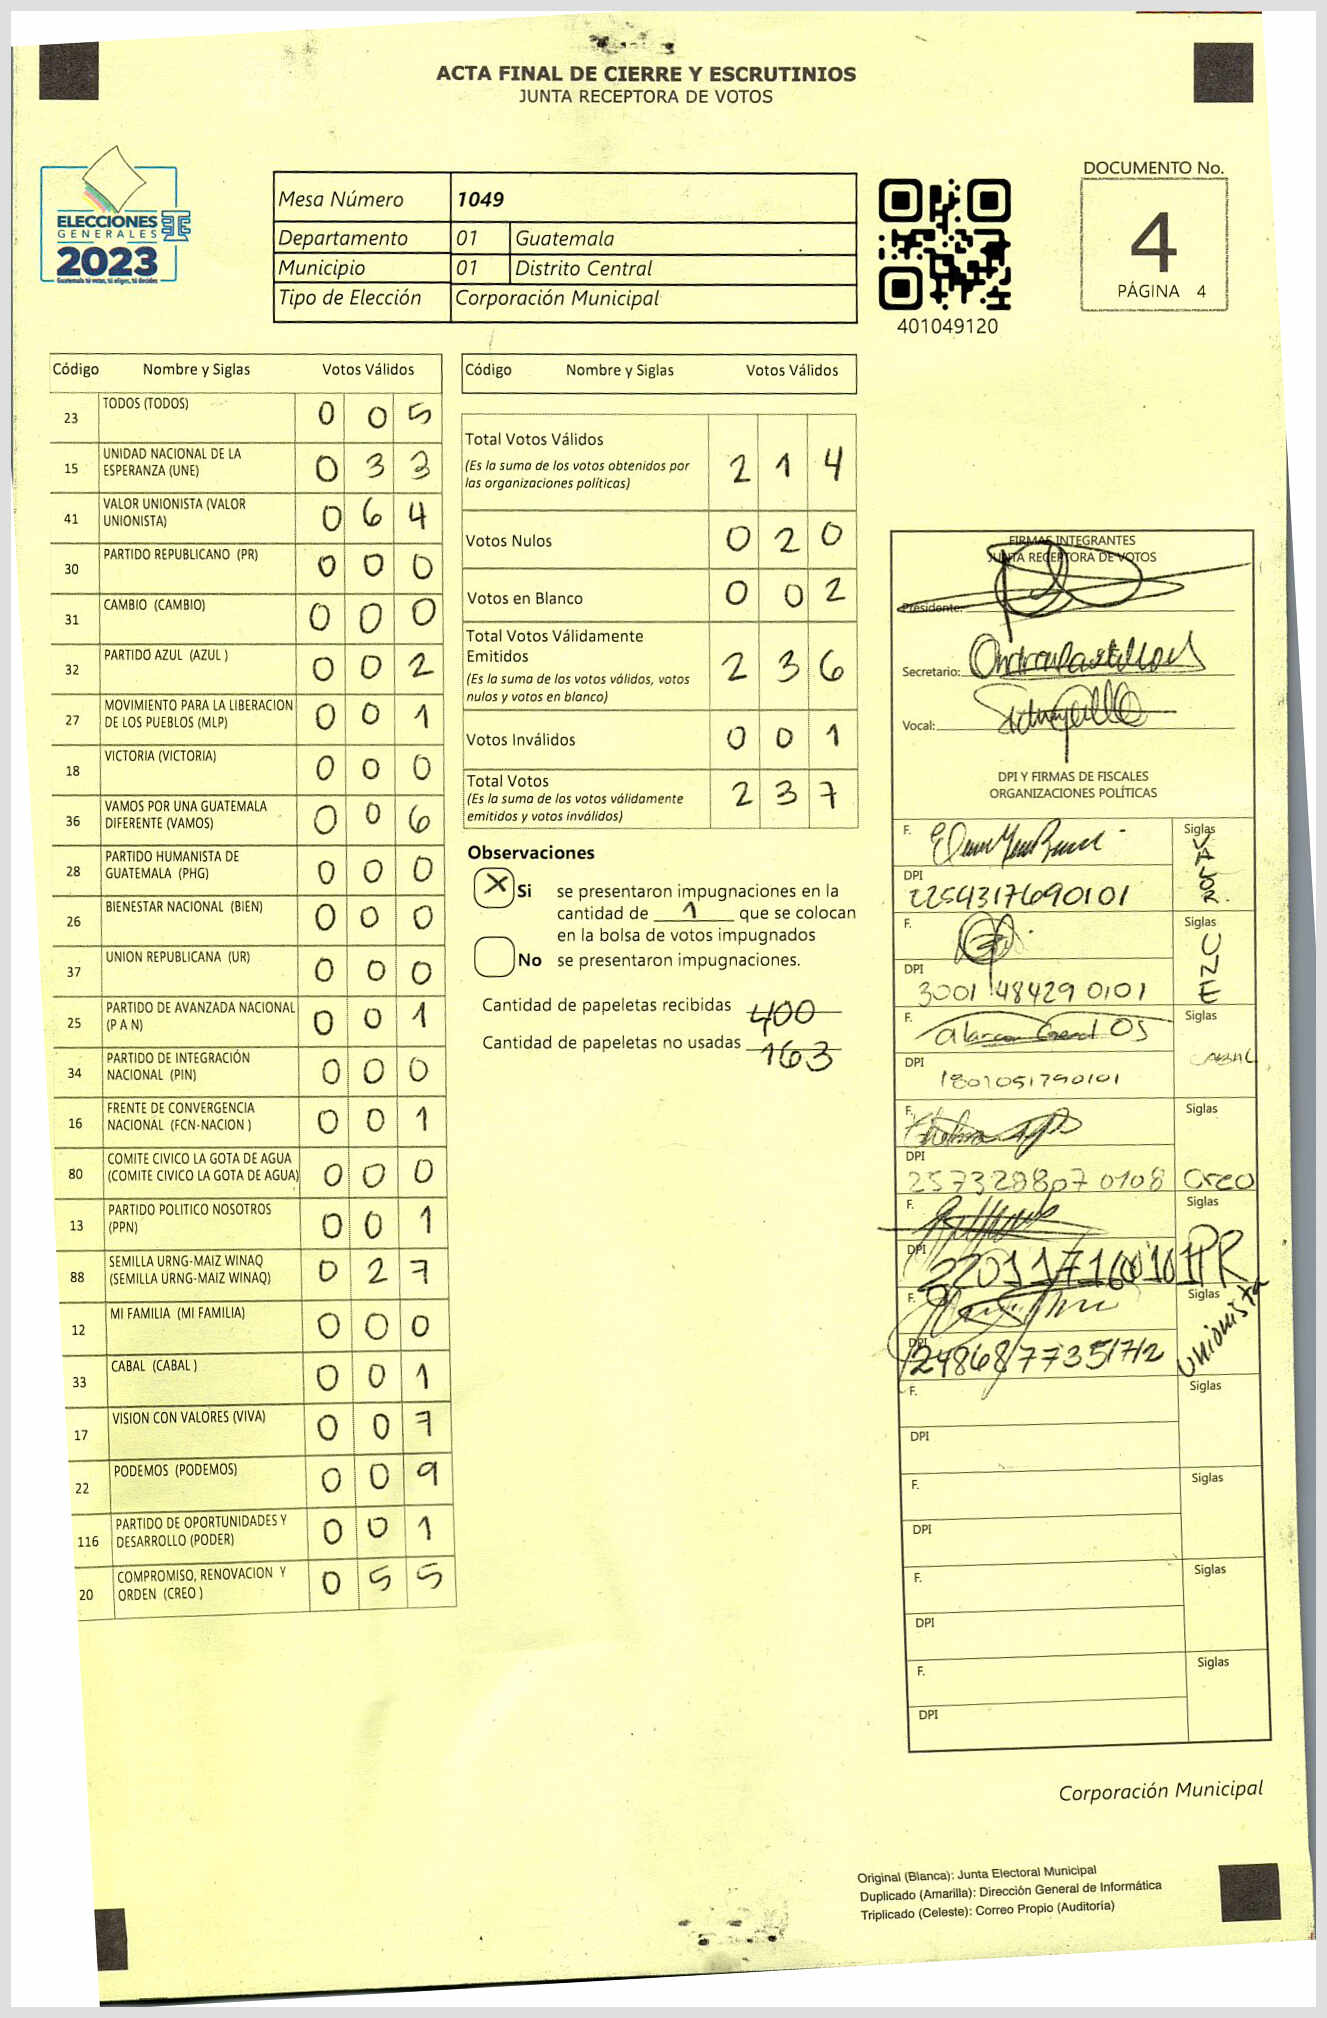 ACTA FINAL DE CIERRE Y ESCRUTINIOS
JUNTA RECEPTORA DE VOTOS
ELECCIONES
GENERALES
2023
Guatemala tú votas, tú eliges, tú decides
Mesa Número 1049
Departamento 01 Guatemala
Municipio 01 Distrito Central
Tipo de Elección Corporación Municipal
401049120
DOCUMENTO No.
4
PÁGINA 4
Código Nombre y Siglas Votos Válidos
23 TODOS (TODOS) 0 0 5
15 UNIDAD NACIONAL DE LA ESPERANZA (UNE) 0 3 3
41 VALOR UNIONISTA (VALOR UNIONISTA) 0 6 4
30 PARTIDO REPUBLICANO (PR) 0 0 0
31 CAMBIO (CAMBIO) 0 0 0
32 PARTIDO AZUL (AZUL ) 0 0 2
27 MOVIMIENTO PARA LA LIBERACION DE LOS PUEBLOS (MLP) 0 0 1
18 VICTORIA (VICTORIA) 0 0 0
36 VAMOS POR UNA GUATEMALA DIFERENTE (VAMOS) 0 0 6
28 PARTIDO HUMANISTA DE GUATEMALA (PHG) 0 0 0
26 BIENESTAR NACIONAL (BIEN) 0 0 0
37 UNION REPUBLICANA (UR) 0 0 0
25 PARTIDO DE AVANZADA NACIONAL (P A N) 0 0 1
34 PARTIDO DE INTEGRACIÓN NACIONAL (PIN) 0 0 0
16 FRENTE DE CONVERGENCIA NACIONAL (FCN-NACION ) 0 0 1
80 COMITE CIVICO LA GOTA DE AGUA (COMITE CIVICO LA GOTA DE AGUA) 0 0 0
13 PARTIDO POLITICO NOSOTROS (PPN) 0 0 1
88 SEMILLA URNG-MAIZ WINAQ (SEMILLA URNG-MAIZ WINAQ) 0 2 7
12 MI FAMILIA (MI FAMILIA) 0 0 0
33 CABAL (CABAL ) 0 0 1
17 VISION CON VALORES (VIVA) 0 0 7
22 PODEMOS (PODEMOS) 0 0 9
116 PARTIDO DE OPORTUNIDADES Y DESARROLLO (PODER) 0 0 1
20 COMPROMISO, RENOVACION Y ORDEN (CREO ) 0 5 5
Código Nombre y Siglas Votos Válidos
Total Votos Válidos 2 1 4
(Es la suma de los votos obtenidos por
las organizaciones políticas)
Votos Nulos 0 2 0
Votos en Blanco 0 0 2
Total Votos Válidamente
Emitidos 2 3 6
(Es la suma de los votos válidos, votos
nulos y votos en blanco)
Votos Inválidos 0 0 1
Total Votos 2 3 7
(Es la suma de los votos válidamente
emitidos y votos inválidos)
Observaciones
X Si se presentaron impugnaciones en la
cantidad de 1 que se colocan
en la bolsa de votos impugnados
No se presentaron impugnaciones.
Cantidad de papeletas recibidas 400
Cantidad de papeletas no usadas 163
FIRMAS INTEGRANTES
JUNTA RECEPTORA DE VOTOS
Presidente:
Secretario:
Vocal:
DPI Y FIRMAS DE FISCALES
ORGANIZACIONES POLÍTICAS
F. Siglas VALOR.
DPI 2254317690101
F. Siglas UNE
DPI 3001 48429 0101
F. Siglas
DPI 1801051790101
F. Siglas
DPI 257328807 0108 Creo
F. Siglas PR
DPI
F. Siglas Unionista
DPI
F. Siglas
DPI
F. Siglas
DPI
F. Siglas
DPI
F. Siglas
DPI
Corporación Municipal
Original (Blanca): Junta Electoral Municipal
Duplicado (Amarilla): Dirección General de Informática
Triplicado (Celeste): Correo Propio (Auditoría)